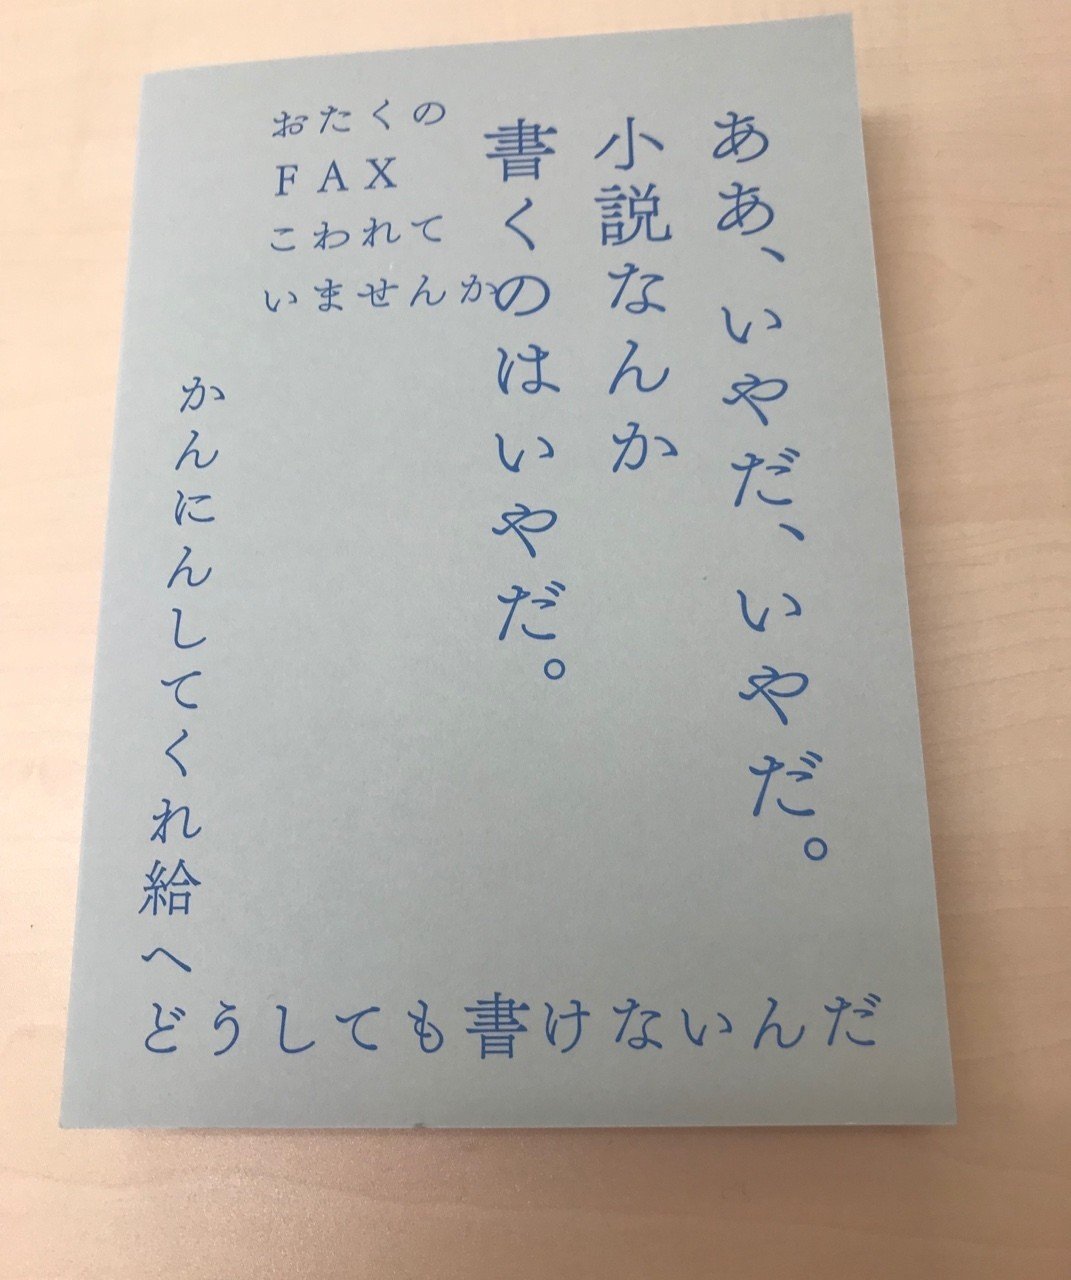 ああ、いやだ、いやだ。
小説なんか
書くのはいやだ。
おたくの
FAX
こわれて
いませんか
かんにんしてくれ給へ
どうしても書けないんだ